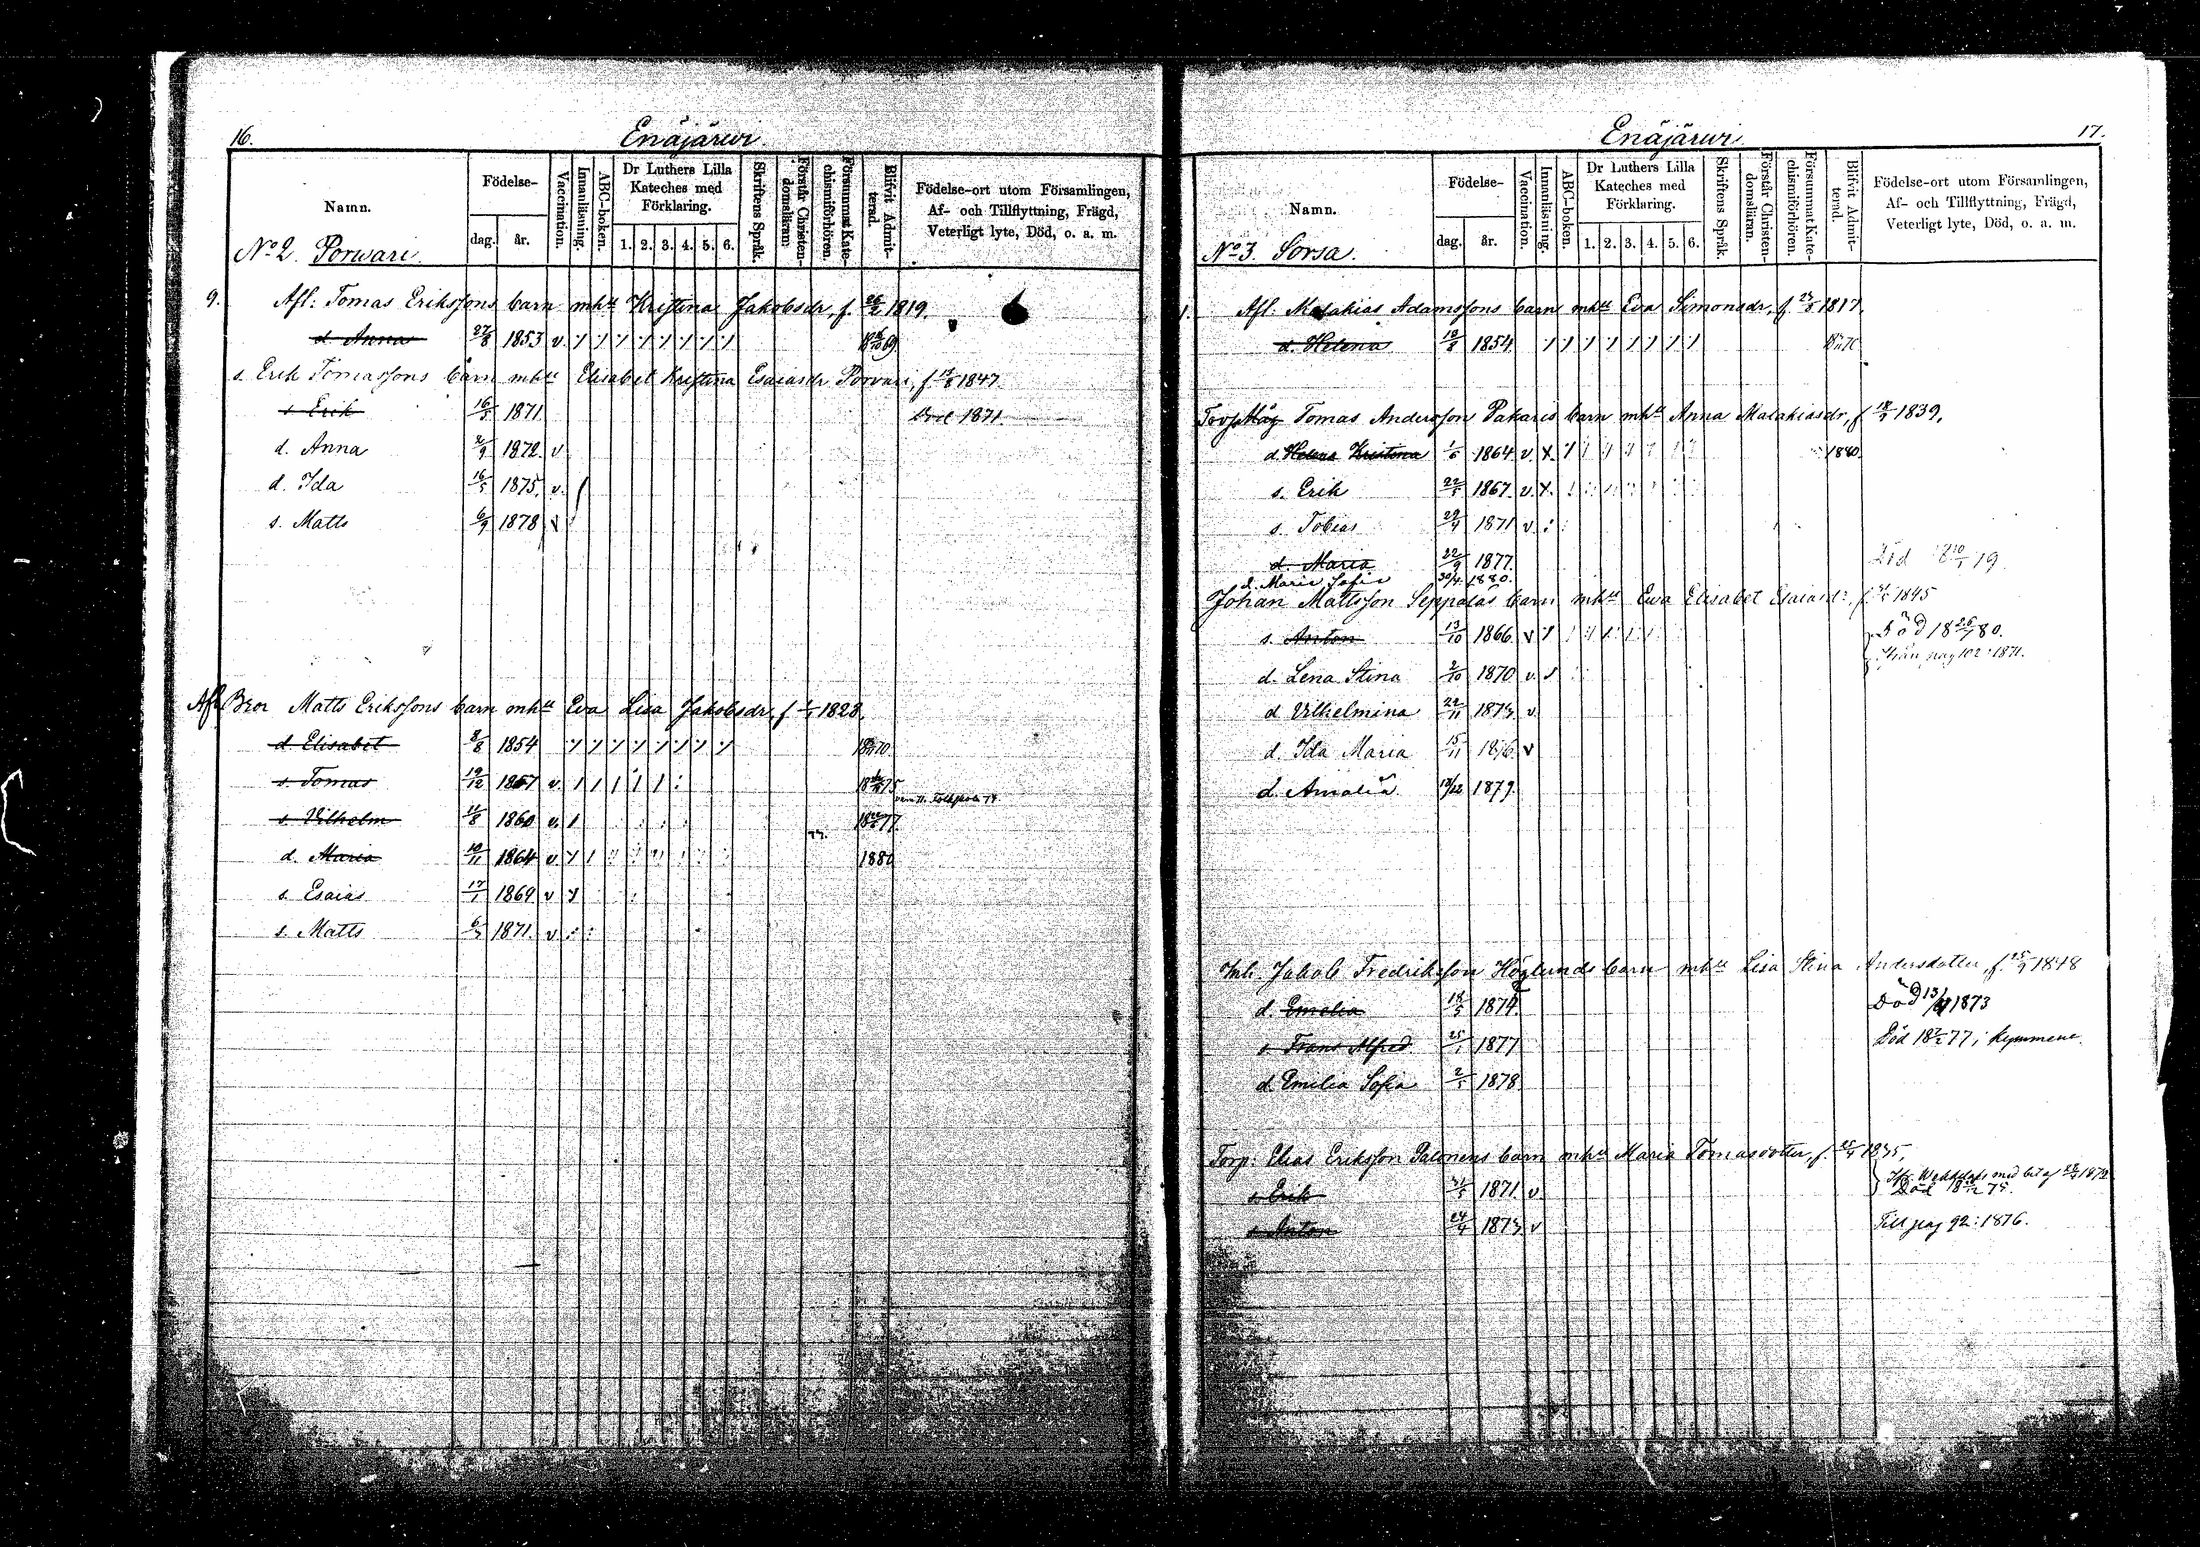 16.
Enäjärwi
Namn.
Födelse-
dag.
år.
Vaccination.
Innanläsning.
ABC-boken.
Dr Luthers Lilla Kateches med Förklaring.
1. 2. 3. 4. 5. 6.
Skriftens Språk.
Förstår Christendomsläran.
Försummat Katechismiförhören.
Blifvit Admitterad.
Födelse-ort utom Församlingen, Af- och Tillflyttning, Frägd, Veterligt lyte, Död, o. a. m.
No 2. Porwari.
9. Afl: Tomas Erikssons barn mhu Kristina Jakobsdr, f. 26/2 1819.
d. Anna 27/8 1853 v.
s. Erik Tomassons barn mhu Elisabet Kristina Esaiasdr Porvari, f 1847.
s. Erik 16/5 1871. Död 1871.
d. Anna 2/9 1872. v
d. Ida 16/5 1875. v.
s. Matts 6/9 1878 v
Afl Bror Matts Erikssons barn mhu Eva Lisa Jakobsdr, f 1828.
d. Elisabet 8/8 1854
s. Tomas 19/12 1857 v.
s. Vilhelm 11/8 1860 v.
d. Maria 10/11 1864 v 1880
s. Esaias 17/1 1869. v
s. Matts 1871. v
17.
Enäjärwi
Namn.
Födelse-
dag.
år.
Vaccination.
Innanläsning.
ABC-boken.
Dr Luthers Lilla Kateches med Förklaring.
1. 2. 3. 4. 5. 6.
Skriftens Språk.
Förstår Christendomsläran.
Försummat Katechismiförhören.
Blifvit Admitterad.
Födelse-ort utom Församlingen, Af- och Tillflyttning, Frägd, Veterligt lyte, Död, o. a. m.
No 3. Sorsa.
1. Afl. Malakias Adamssons barn mhu Eva Simonsdr, f. 1817.
d. Helena 18/8 1854.
Tomas Andersson Pakaris barn mhu Anna Malakiasdr, f 1839.
d. Helena Kristina 1/6 1864. v. 1880.
s. Erik 22/5 1867. v.
s. Tobias 29/4 1871 v
d. Maria 22/9 1877.
d. Maria Sofia 30/4. 1880.
Johan Mattsson Seppäläs barn mhu Ewa Elisabet Esaiasdr, f. 1845
s. Anton 13/10 1866 v Död 18 80.
från pag 102: 1871.
d. Lena Stina 2/10 1870 v.
d Vilhelmina 22/11 1873. v
d. Ida Maria 15/11 1876. v
d. Amalia 1879.
Inh. Jakob Fredriksson Höglunds barn mhu Lisa Stina Andersdotter, f. 25/9 1848
d. Emelia 18/5 1874. Död 1873
s. Frans Alfred 25/1 1877 Död 18 77 i Kymmene.
d. Emilia Sofia 2/5 1878
Torp. Elias Eriksson Palonens barn mhu Maria Tomasdotter, f.
s. Erik 31/5 1871. v. Död
s. Anton 24/4 1873 v Till pag 92: 1876.